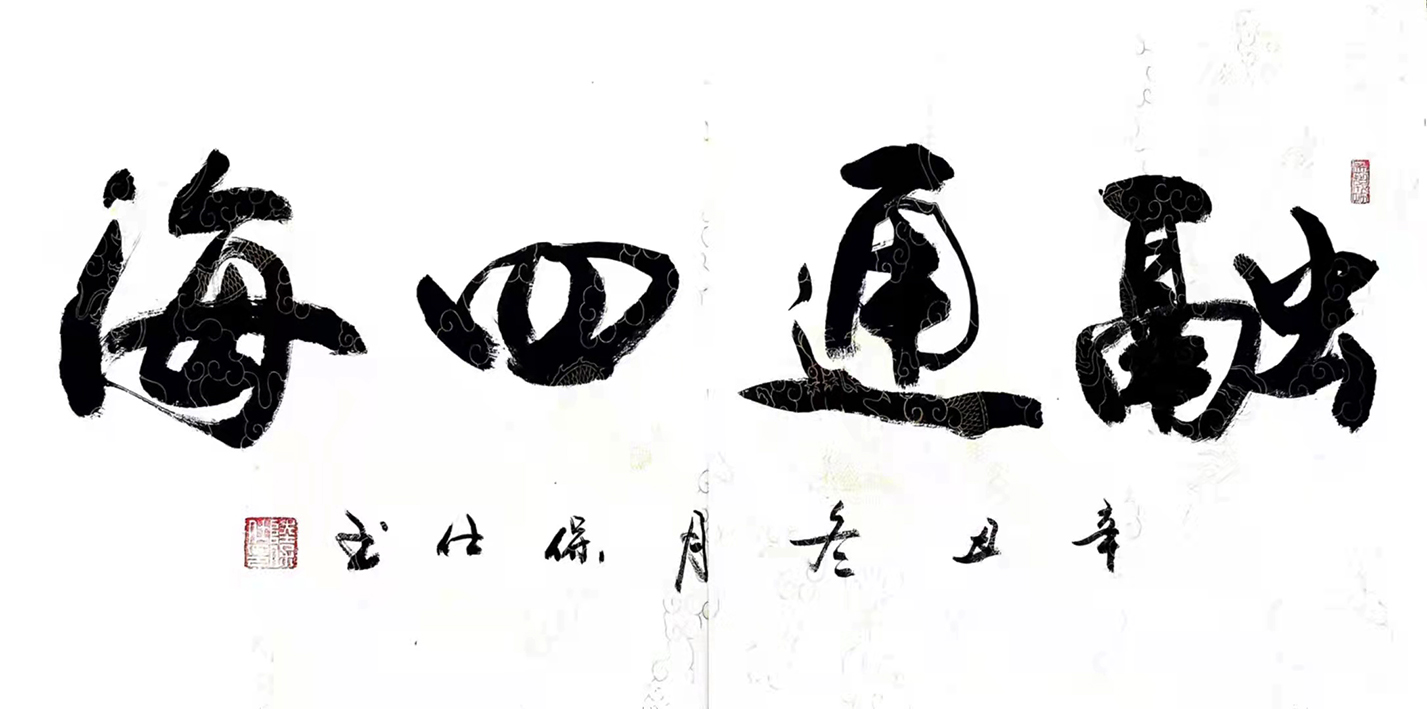 融通四海
辛丑冬月保仕书